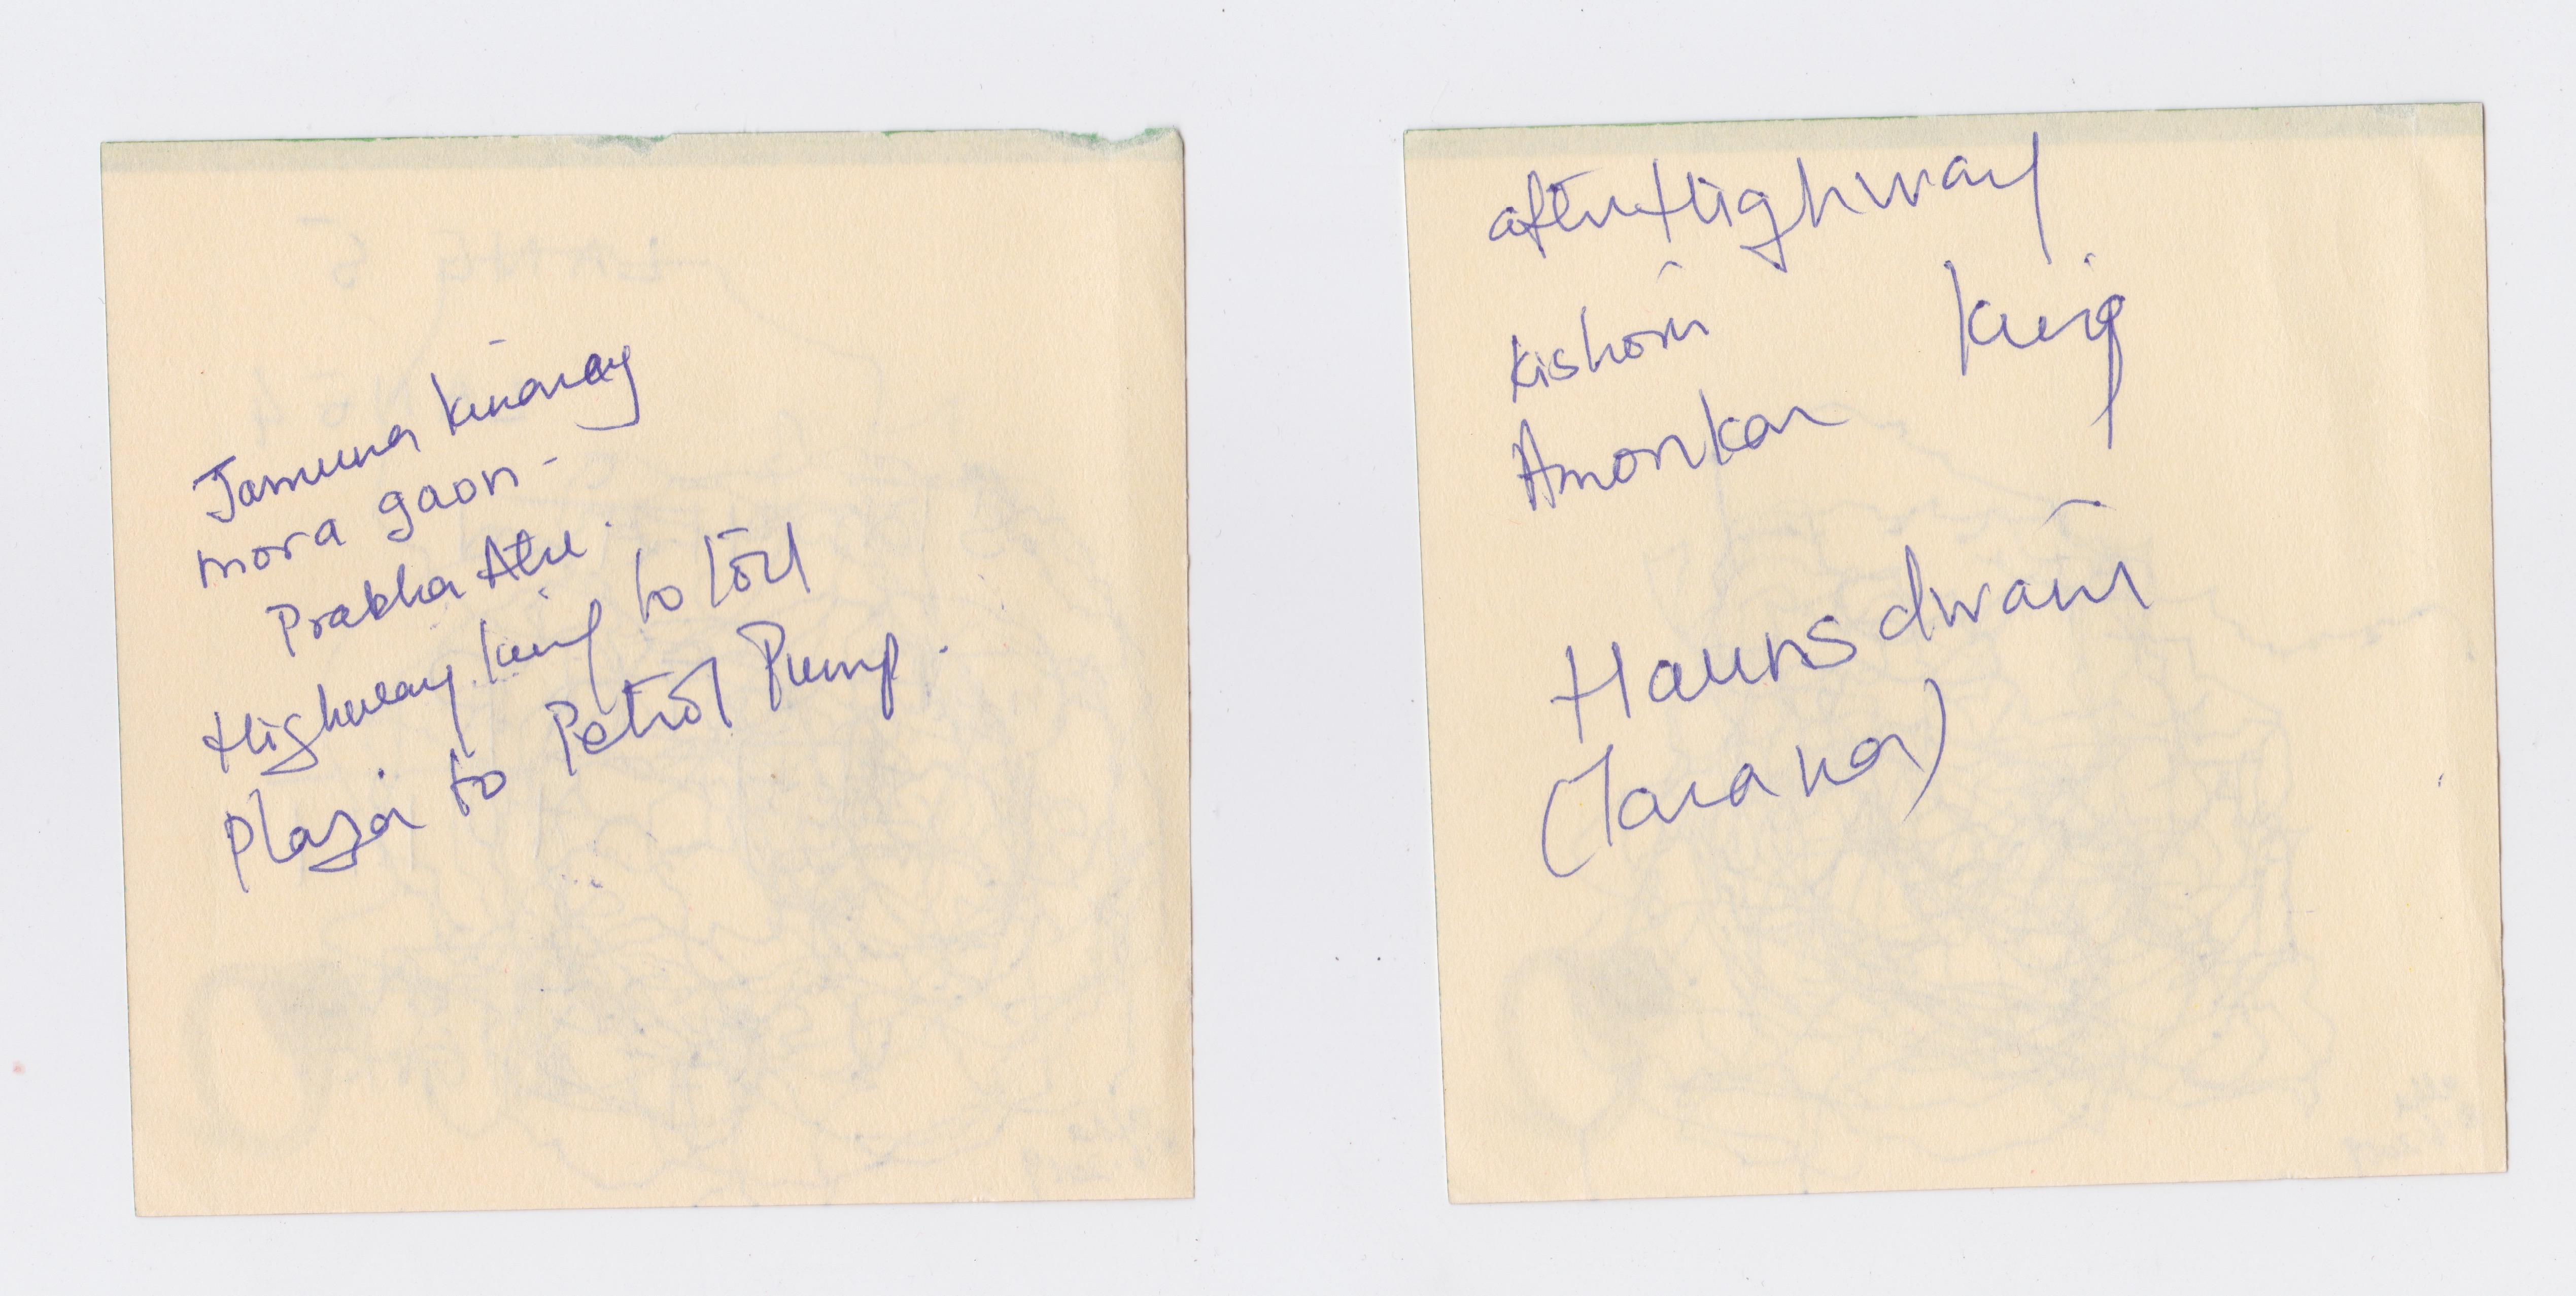 Jamuna Kinaray
mora gaon -
Prabha Atre.
Highway King to toll
Plaza to Petrol Pump.
after Highway
King
Kishori
Amonkar
Haunsdwani
(Tarana)